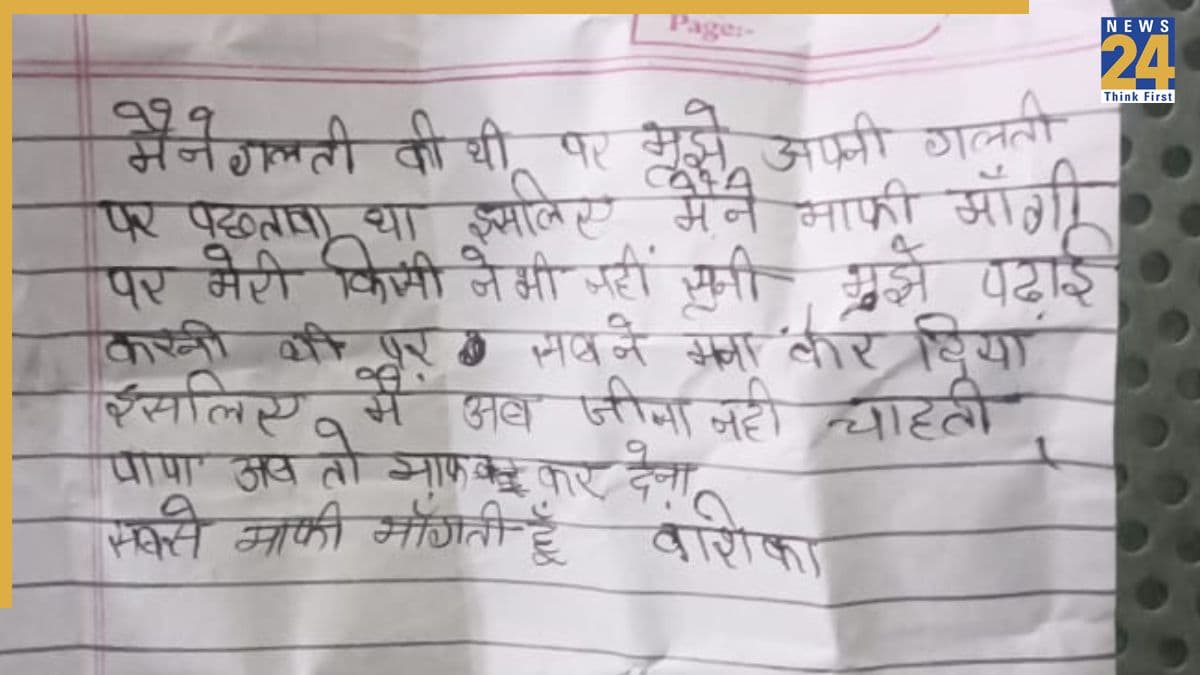 Page:-
NEWS
24
Think First
मैंने गलती की थी पर मुझे अपनी गलती
पर पछतावा था इसलिए मैंने माफी माँगी
पर मेरी किसी ने भी नहीं सुनी मुझे पढ़ाई
करनी थी पर सबने मना कर दिया
इसलिए मैं अब जीना नही चाहती
पापा अब तो माफ कर देना
सबसे माफी माँगती हूँ वंशिका